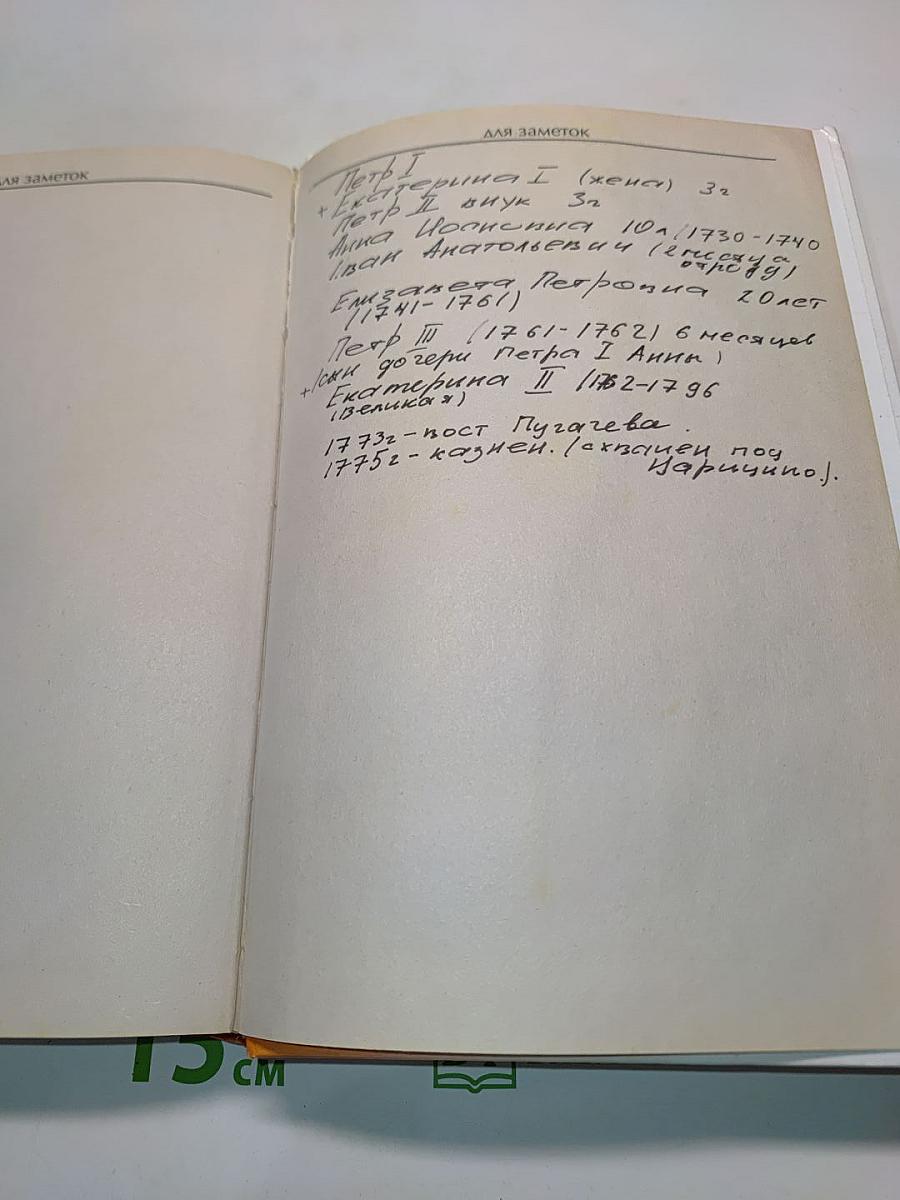 для заметок
для заметок
Петр I
+ Екатерина I (жена) 3г
Петр II внук 3г
Анна Иоановна 10л (1730-1740
Иван Анатольевич (2 месяца
отроду)
Елизавета Петровна 20 лет
(1741-1761)
Петр III (1761-1762) 6 месяцев
+ (сын дочери Петра I Анны)
Екатерина II (1762-1796
(великая)
1773г - вост Пугачева.
1775г - казнен. (схвачен под
Царицино).
15 см